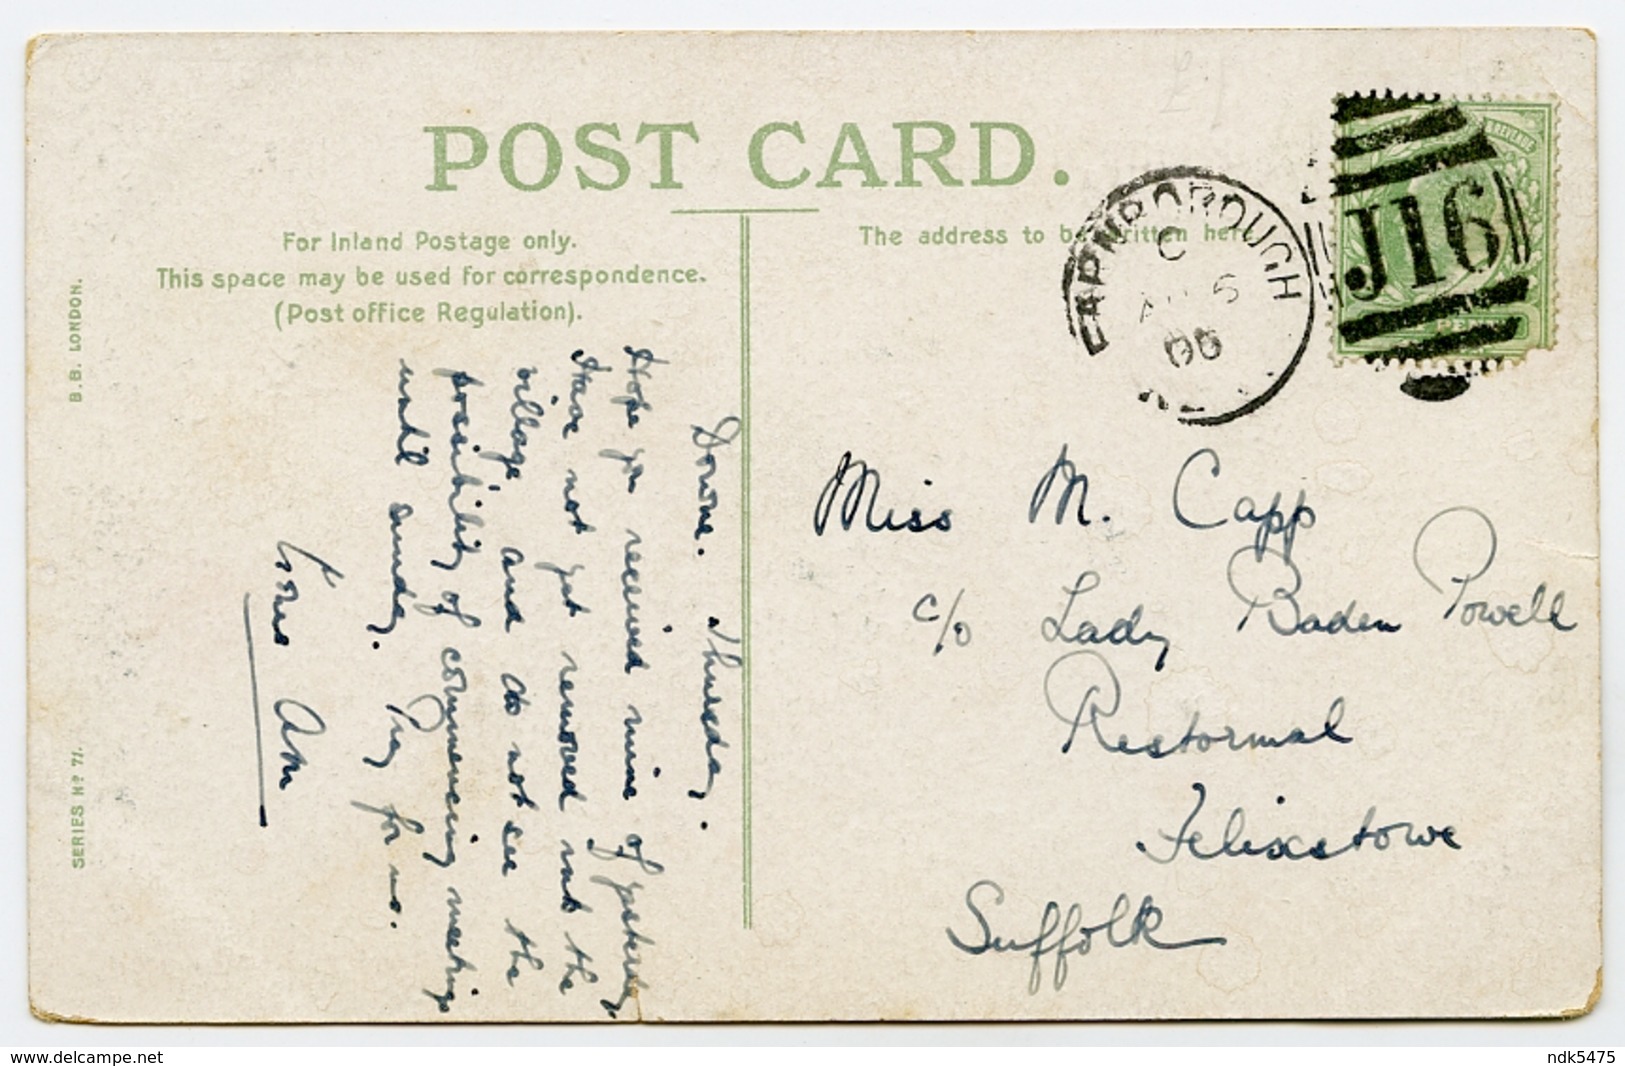 POST CARD.
For Inland Postage only.
This space may be used for correspondence.
(Post office Regulation).
The address to be written here
B.B. LONDON.
SERIES Nº 71.
FARNBOROUGH
C
AU 5
06
J16
REVENUE
Downe. Thursday.
Hope you received mine of yesterday
Have not yet removed into the
village and do not see the
possibility of commencing meetings
until Sunday. Pray for us.
Yours
Miss M. Capp
c/o Lady Baden Powell
Restormal
Felixstowe
Suffolk
www.delcampe.net
ndk5475